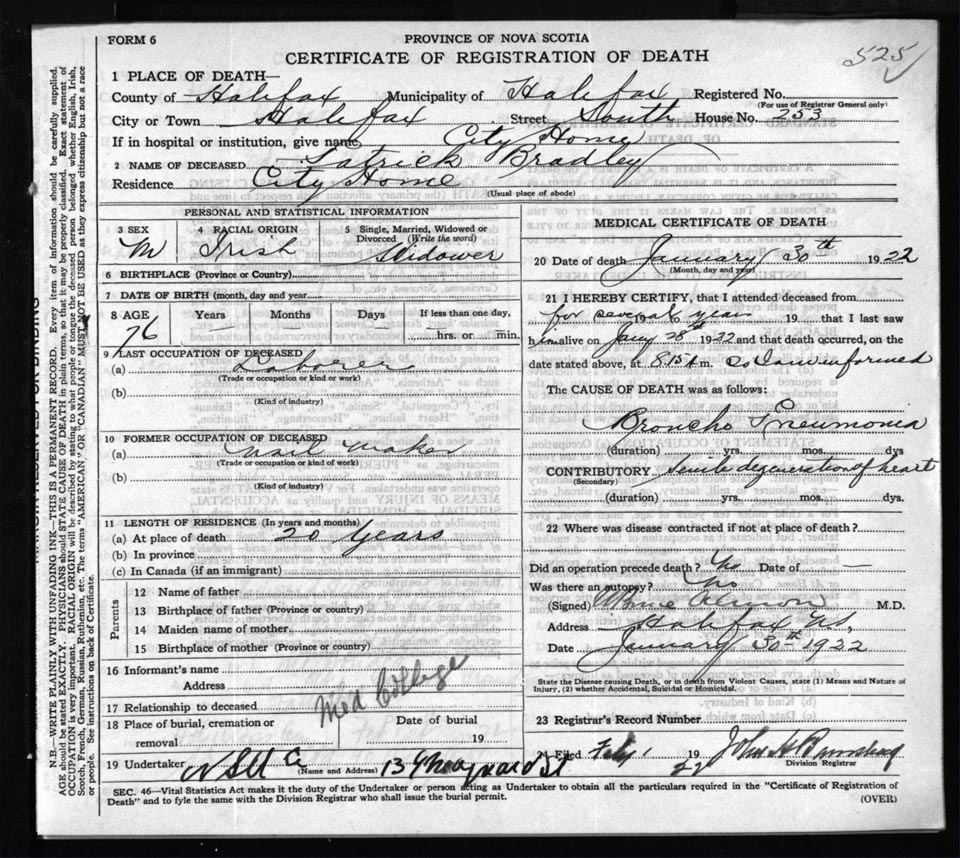 FORM 6
PROVINCE OF NOVA SCOTIA
CERTIFICATE OF REGISTRATION OF DEATH
525
1 PLACE OF DEATH—
County of Halifax Municipality of Halifax Registered No.
(For use of Registrar General only)
City or Town Halifax Street South House No. 253
If in hospital or institution, give name City Home
2 NAME OF DECEASED Patrick Bradley
Residence City Home
(Usual place of abode)
PERSONAL AND STATISTICAL INFORMATION
3 SEX M
4 RACIAL ORIGIN Irish
5 Single, Married, Widowed or Divorced (Write the word) Widower
6 BIRTHPLACE (Province or Country)
7 DATE OF BIRTH (month, day and year)
8 AGE Years Months Days If less than one day,
76 hrs. or min.
9 LAST OCCUPATION OF DECEASED
(a) Laborer
(Trade or occupation or kind or work)
(b)
(Kind of industry)
10 FORMER OCCUPATION OF DECEASED
(a) Nail Maker
(Trade or occupation or kind of work)
(b)
(Kind of industry)
11 LENGTH OF RESIDENCE (In years and months)
(a) At place of death 20 years
(b) In province
(c) In Canada (if an immigrant)
Parents
12 Name of father
13 Birthplace of father (Province or country)
14 Maiden name of mother
15 Birthplace of mother (Province or country)
16 Informant's name
Address
Med College
17 Relationship to deceased
18 Place of burial, cremation or removal
Date of burial
19
19 Undertaker N S U Co 134 Maynard St
(Name and Address)
MEDICAL CERTIFICATE OF DEATH
20 Date of death January 30th 1922
(Month, day and year)
21 I HEREBY CERTIFY, that I attended deceased from
for several years 19 that I last saw
him alive on Jany 28th 1922 and that death occurred, on the
date stated above, at 815 A m. as I am informed
The CAUSE OF DEATH was as follows:
Broncho Pneumonia
(duration) yrs. mos. dys
CONTRIBUTORY Senile degeneration of heart
(Secondary)
(duration) yrs. mos. dys.
22 Where was disease contracted if not at place of death?
Did an operation precede death? No Date of —
Was there an autopsy? No
(Signed) Almon M.D.
Address Halifax NS,
Date January 30th 1922
State the Disease causing Death, or in death from Violent Causes, state (1) Means and Nature of
Injury, (2) whether Accidental, Suicidal or Homicidal.
23 Registrar's Record Number
24 Filed Feby 1 1922 John H
Division Registrar
SEC. 46—Vital Statistics Act makes it the duty of the Undertaker or person acting as Undertaker to obtain all the particulars required in the "Certificate of Registration of
Death" and to fyle the same with the Division Registrar who shall issue the burial permit.
(OVER)
MARGIN RESERVED FOR BINDING
N.B.—WRITE PLAINLY WITH UNFADING INK—THIS IS A PERMANENT RECORD. Every item of information should be carefully supplied.
AGE should be stated EXACTLY. PHYSICIANS should STATE CAUSE OF DEATH in plain terms, so that it may be properly classified. Exact statement of
OCCUPATION is very important. RACIAL ORIGIN will be described by stating to what people or tongue the deceased person belonged whether English, Irish,
Scotch, French, German, Russian, Ruthenian, etc. The terms "AMERICAN" OR "CANADIAN" MUST NOT BE USED as they express citizenship but not a race
or people. See instructions on back of Certificate.